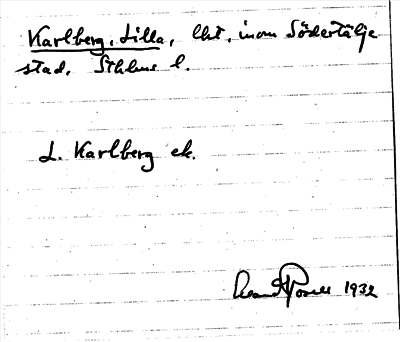 Karlberg, Lilla, lht, inom Södertälje
stad, Sthlms l.
L. Karlberg ek.
1932